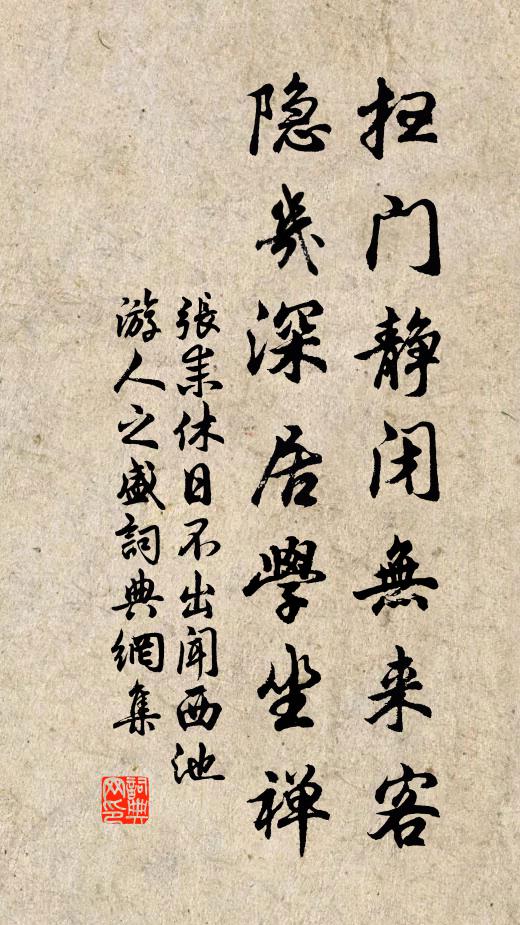 扭门静闭無来客
隐幾深居學坐禅
張耒休日不出闻西池
游人之盛詞典網集
詞典
网印